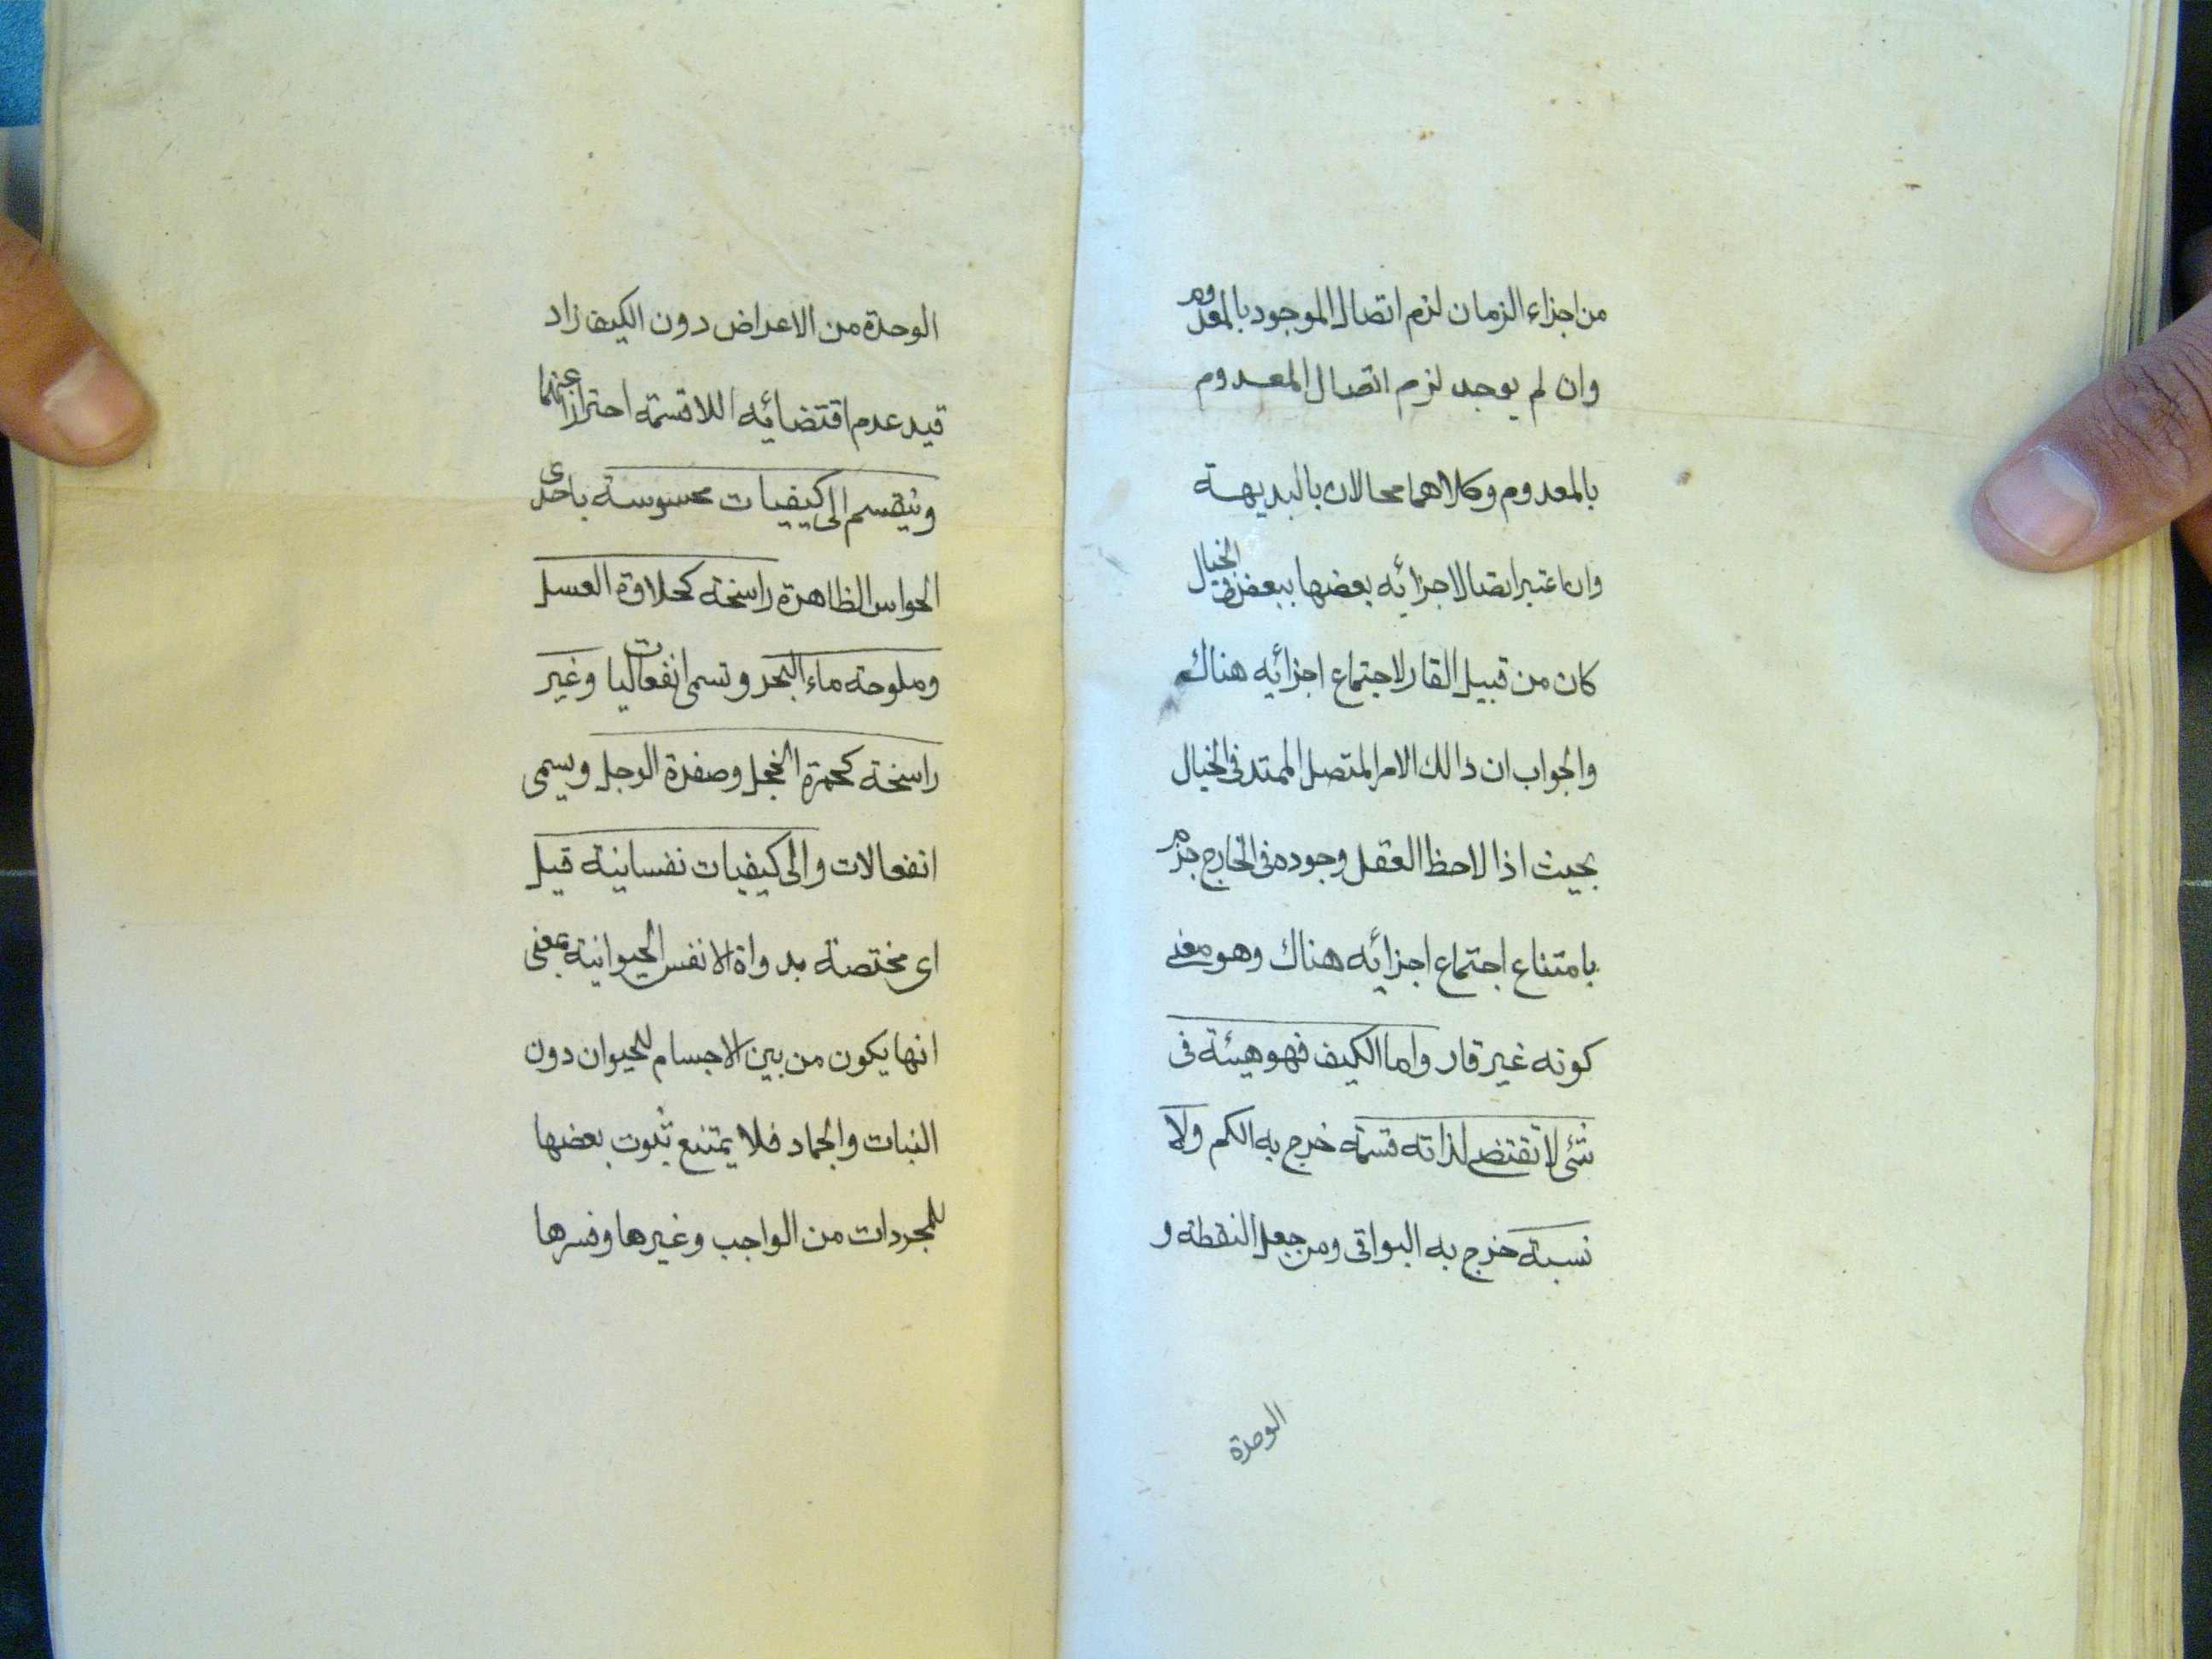 من اجزاء الزمان لزم اتصال الموجود بالمعدوم
وان لم يوجد لزم اتصال المعدوم
بالمعدوم وكلاهما محالان بالبديهة
وان اعتبر اتصال اجزائه بعضها ببعض في الخيال
كان من قبيل القار لاجتماع اجزائه هناك
والجواب ان ذالك الامر المتصل الممتد في الخيال
بحيث اذا لاحظ العقل وجوده في الخارج جزم
بامتناع اجتماع اجزائه هناك وهو معنى
كونه غير قار واما الكيف فهو هيئة فى
شئ لا تقتضى لذاته قسمة خرج به الكم ولا
نسبة خرج به البواقى ومن جعل النقطة و
الوحدة
الوحدة من الاعراض دون الكيف زاد
قيد عدم اقتضائه اللاقسمة احترازا عنهما
وينقسم الى كيفيات محسوسة باحدى
الحواس الظاهرة راسخة كحلاوة العسل
وملوحة ماء البحر وتسمى انفعاليات وغير
راسخة كحمرة الخجل وصفرة الوجل ويسمى
انفعالات والى كيفيات نفسانية قيل
اى مختصة بدواة الانفس الحيوانية بمعنى
انها يكون من بين الاجسام للحيوان دون
النبات والجماد فلا يمتنع ثبوت بعضها
للمجردات من الواجب وغيرها وفسرها